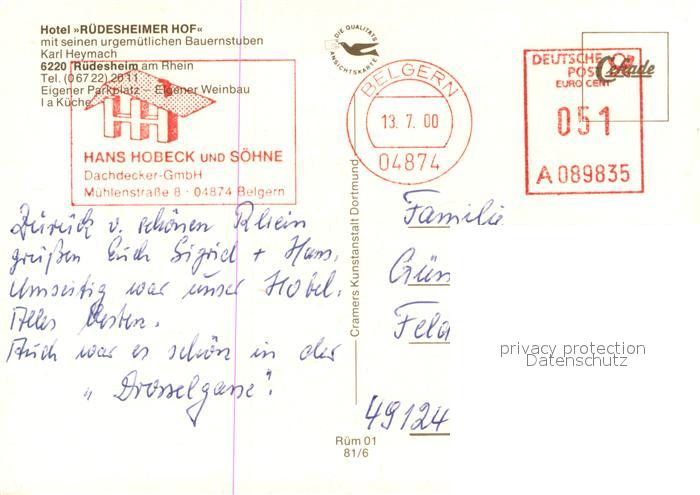 Hotel »RÜDESHEIMER HOF«
mit seinen urgemütlichen Bauernstuben
Karl Heymach
6220 Rüdesheim am Rhein
Tel. (0 67 22) 20 11
Eigener Parkplatz – Eigener Weinbau
I a Küche
HH
HANS HOBECK UND SÖHNE
Dachdecker-GmbH
Mühlenstraße 8 · 04874 Belgern
DIE QUALITÄTS
ANSICHTSKARTE
BELGERN
13. 7. 00
04874
DEUTSCHE
POST
EURO CENT
051
A 089835
Cekade
Zurück v. schönen Rhein
grüßen Euch Sigrid + Hans.
Umseitig war unser Hotel.
Alles Besten.
Auch war es schön in der
„Drosselgasse".
Cramers Kunstanstalt Dortmund
Familie
Gün
Feld
49124
Rüm 01
81/6
privacy protection
Datenschutz